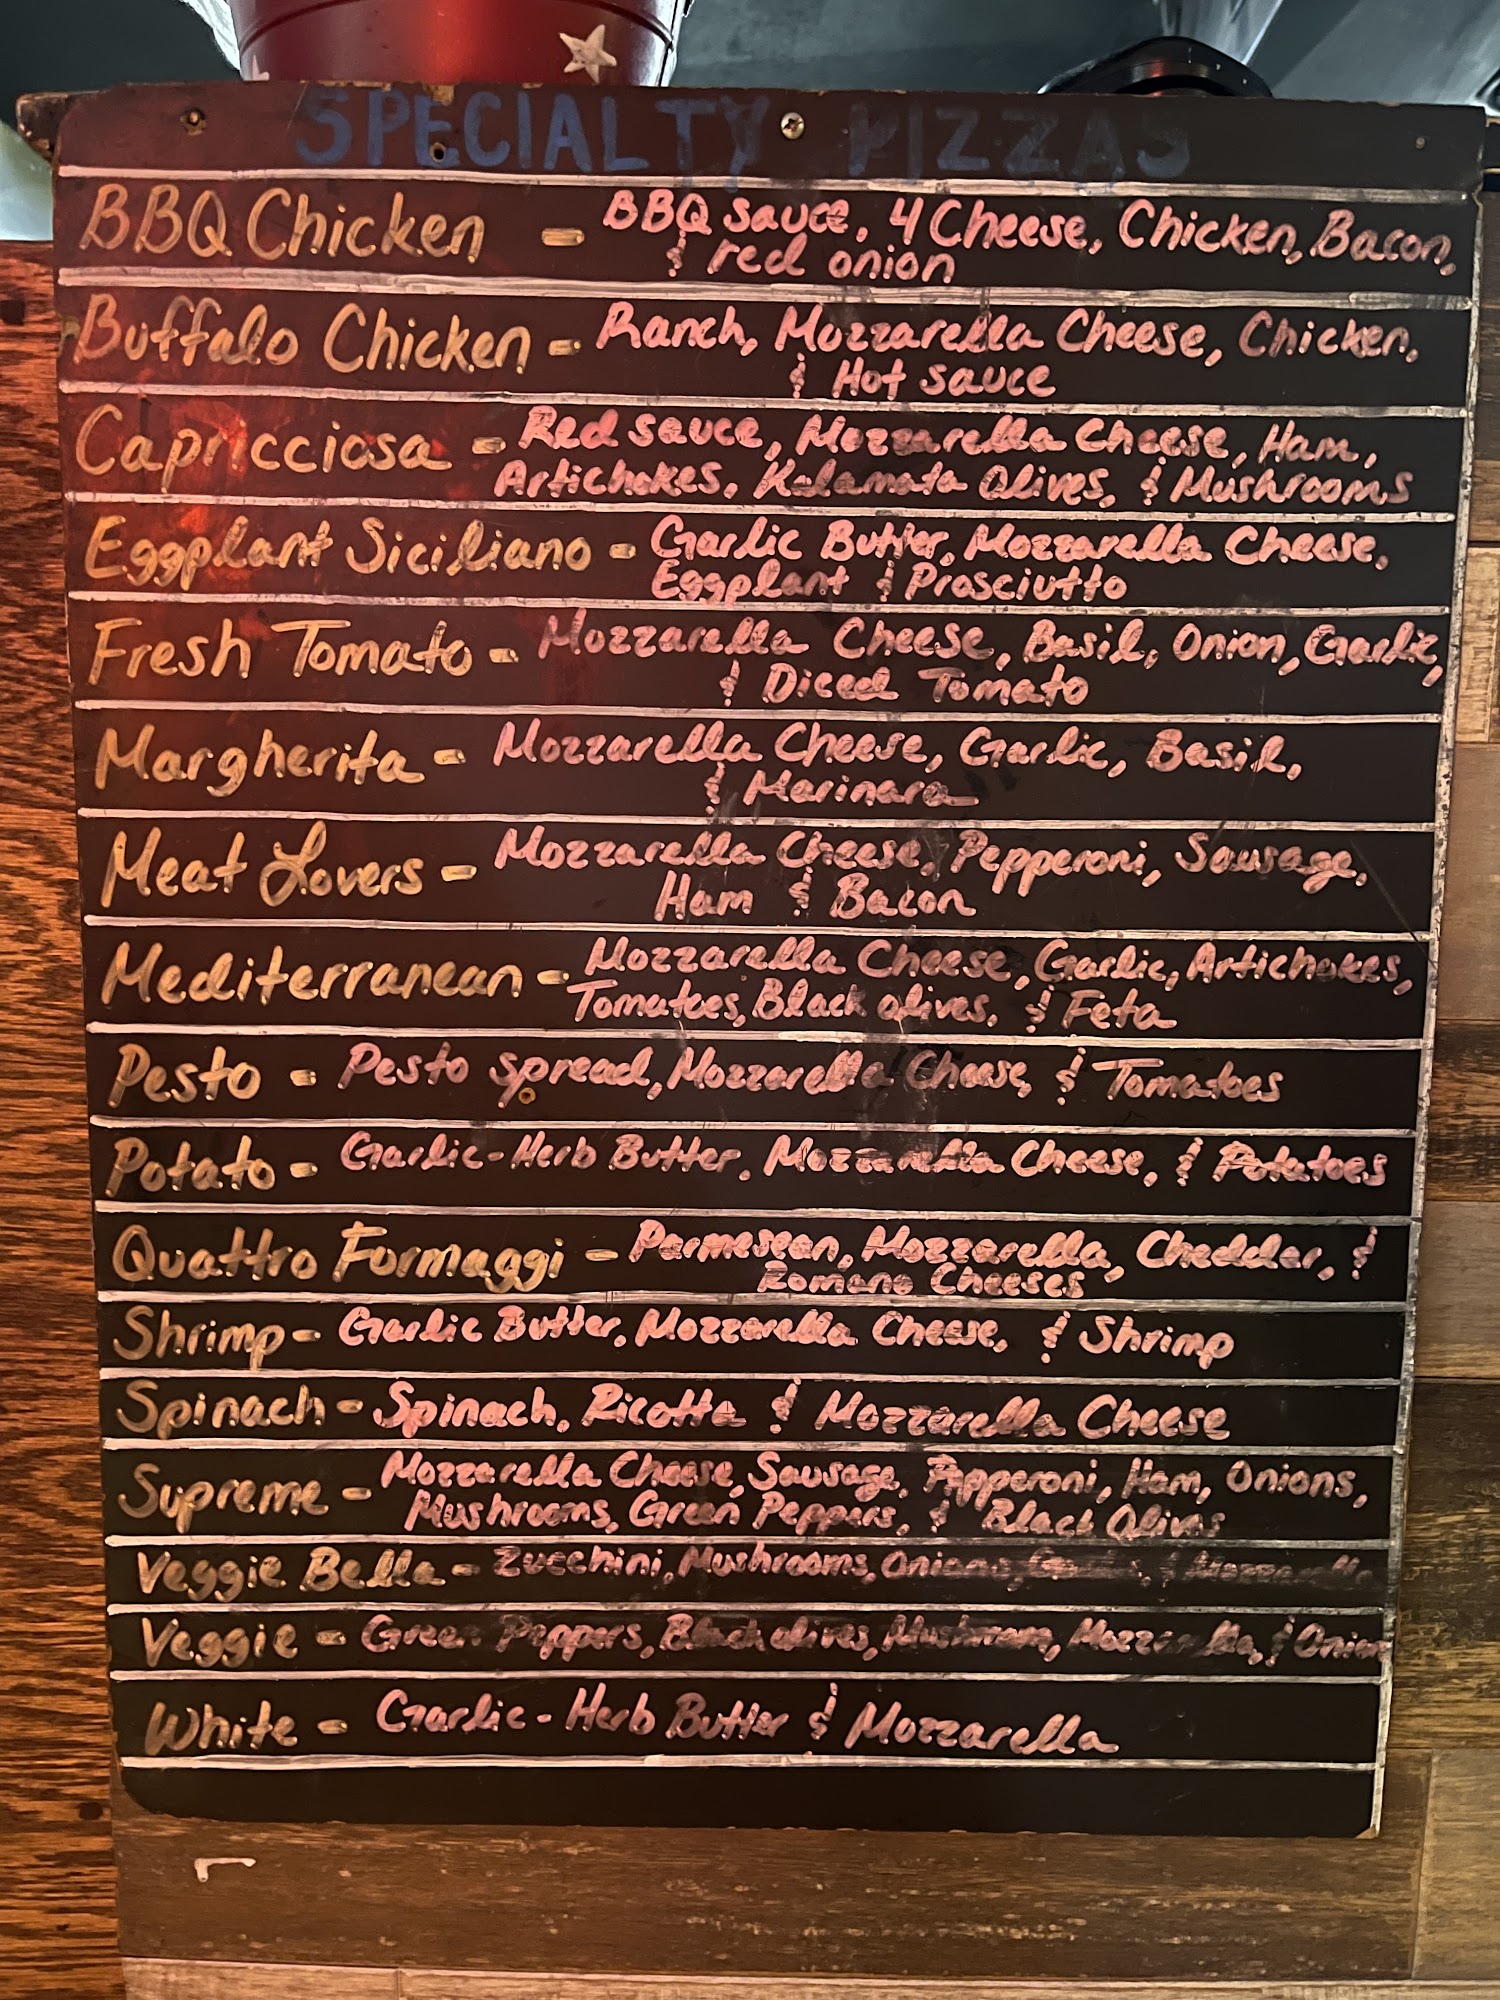 SPECIALTY PIZZAS
BBQ Chicken - BBQ sauce, 4 Cheese, Chicken, Bacon,
& red onion
Buffalo Chicken - Ranch, Mozzarella Cheese, Chicken,
& Hot sauce
Capricciosa - Red sauce, Mozzarella Cheese, Ham,
Artichokes, Kalamata Olives, & Mushrooms
Eggplant Siciliano - Garlic Butter, Mozzarella Cheese,
Eggplant & Prosciutto
Fresh Tomato - Mozzarella Cheese, Basil, Onion, Garlic,
& Diced Tomato
Margherita - Mozzarella Cheese, Garlic, Basil,
& Marinara
Meat Lovers - Mozzarella Cheese, Pepperoni, Sausage,
Ham & Bacon
Mediterranean - Mozzarella Cheese, Garlic, Artichokes,
Tomatoes, Black olives, & Feta
Pesto - Pesto spread, Mozzarella Cheese, & Tomatoes
Potato - Garlic-Herb Butter, Mozzarella Cheese, & Potatoes
Quattro Formaggi - Parmesean, Mozzarella, Cheddar, &
Romano Cheeses
Shrimp - Garlic Butter, Mozzarella Cheese, & Shrimp
Spinach - Spinach, Ricotta & Mozzarella Cheese
Supreme - Mozzarella Cheese, Sausage, Pepperoni, Ham, Onions,
Mushrooms, Green Peppers, & Black Olives
Veggie Bella - Zucchini, Mushrooms, Onions, & Mozzarella
Veggie - Green Peppers, Black olives, Mushroom, Mozzarella, & Onion
White - Garlic-Herb Butter & Mozzarella